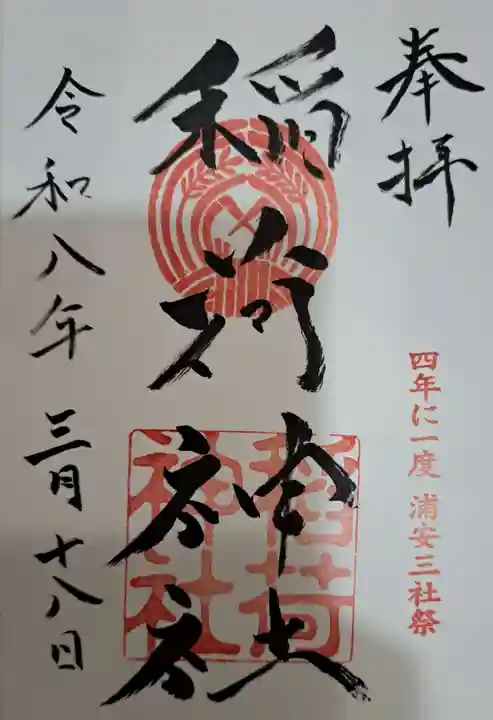 奉拝
四年に一度 浦安三社祭
稲荷神社
稲荷神社
令和八年 三月十八日